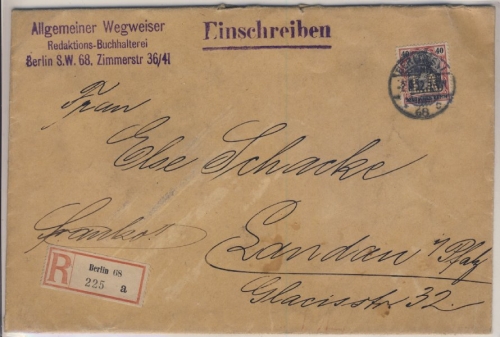 Allgemeiner Wegweiser
Redaktions-Buchhalterei
Berlin S.W. 68, Zimmerstr 36/41
Einschreiben
40 40
Frau
Else Schacke
Franko!
Landau i/Pfalz
Glacisstr. 32.
R
Berlin 68
225 a